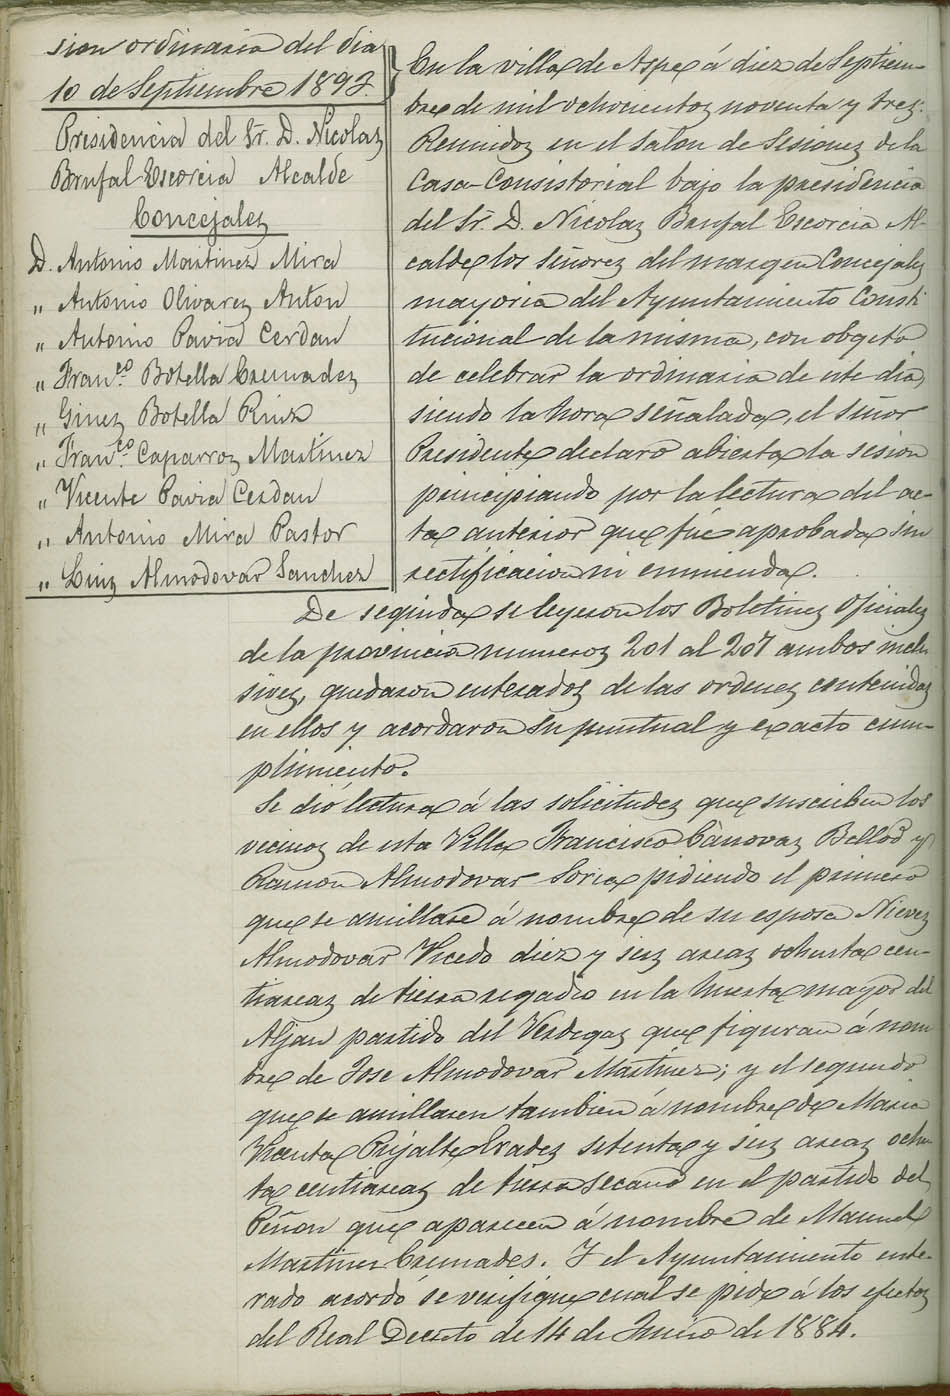 sion ordinaria del dia
10 de Septiembre 1893.
Presidencia del Sr. D. Nicolas
Brufal Escorcia Alcalde
Concejales
D. Antonio Martinez Mira
" Antonio Olivares Anton
" Antonio Pavia Cerdan
" Franco. Botella Cremades
" Gines Botella Ruiz
" Franco. Caparros Martinez
" Vicente Pavia Cerdan
" Antonio Mira Pastor
" Luis Almodovar Sanchez
En la villa de Aspe á diez de Septiem-
bre de mil ochocientos noventa y tres:
Reunidos en el Salon de Sesiones de la
Casa-Consistorial bajo la presidencia
del Sr. D. Nicolas Brufal Escorcia Al-
calde los señores del margen Concejales
mayoria del Ayuntamiento Consti
tucional de la misma, con obgeto
de celebrar la ordinaria de este dia,
siendo la hora señalada, el Señor
Presidente declaró abierta la sesion
principiando por la lectura del ac-
ta anterior que fué aprobada sin
rectificacion ni enmienda.
De seguida se leyeron los Boletines Oficiales
de la provincia numeros 201 al 207 ambos inclu
sives, quedaron enterados de las ordenes contenidas
en ellos y acordaron su puntual y exacto cum-
plimiento.
Se dió lectura á las solicitudes que suscriben los
vecinos de esta Villa Francisco Cánovas Bellod y
Ramon Almodovar Soria pidiendo el primero
que se amillare á nombre de su esposa Nieves
Almodovar Vicedo diez y seis areas ochenta cen-
tiareas de tierra regadio en la huerta mayor del
Aljau partido del Verdegas que figuran á nom
bre de Jose Almodovar Martinez; y el segundo
que se amillaren tambien á nombre de Maria
Vicenta Pujalte Erades setenta y seis areas ochen
ta centiareas de tierra secano en el partido del
Peñon que aparecen á nombre de Manuel
Martinez Cremades. Y el Ayuntamiento ente-
rado acordó se verifique cual se pide á los efectos
del Real Decreto de 14 de Junio de 1884.